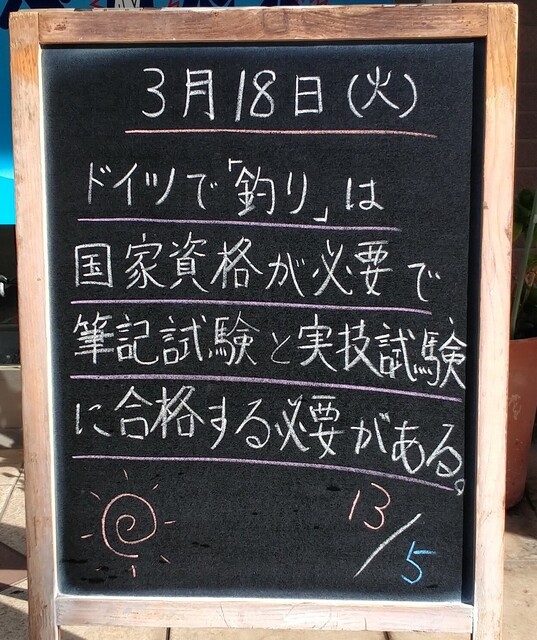 3月18日(火)
ドイツで「釣り」は
国家資格が必要で
筆記試験と実技試験
に合格する必要がある。
13/5